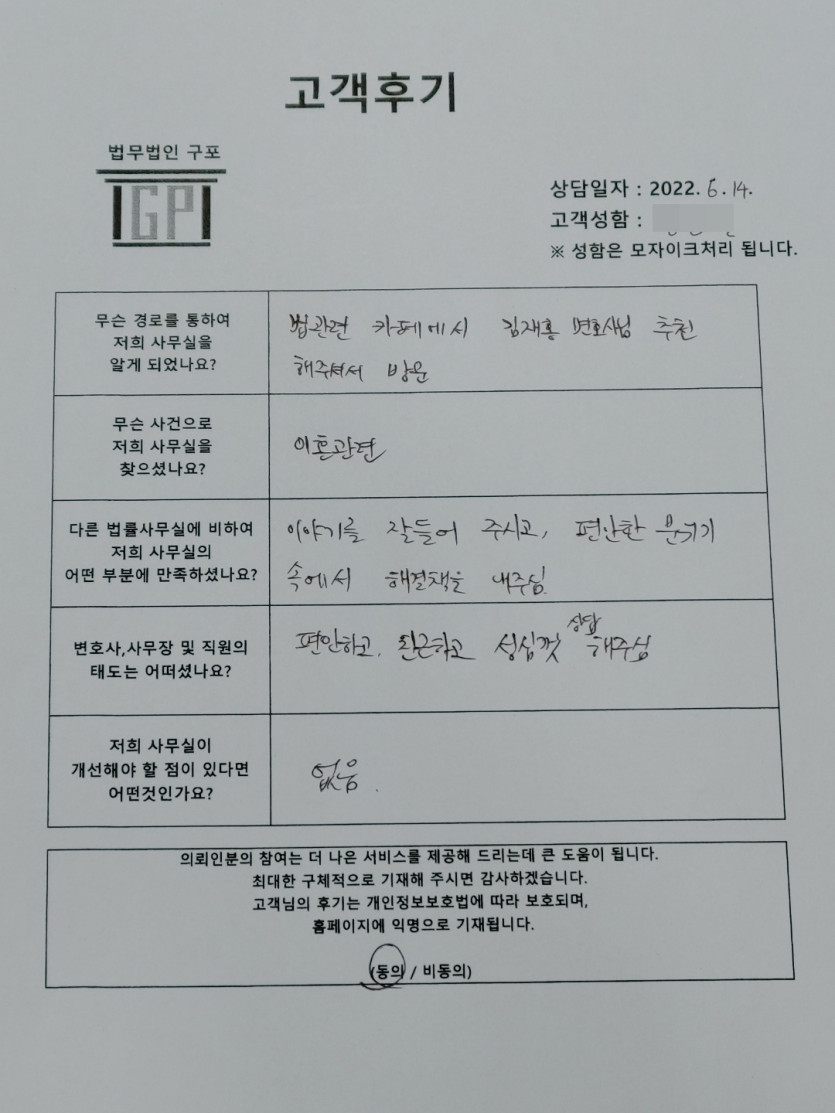 고객후기
법무법인 구포
GP
상담일자 : 2022. 6. 14.
고객성함 :
※ 성함은 모자이크처리 됩니다.
무슨 경로를 통하여
저희 사무실을
알게 되었나요?
법관련 카페에서 김재홍 변호사님 추천
해주셔서 방문
무슨 사건으로
저희 사무실을
찾으셨나요?
이혼관련
다른 법률사무실에 비하여
저희 사무실의
어떤 부분에 만족하셨나요?
이야기를 잘들어 주시고, 편안한 분위기
속에서 해결책을 내주심.
변호사,사무장 및 직원의
태도는 어떠셨나요?
편안하고, 친근하고 성심껏 상담 해주심
저희 사무실이
개선해야 할 점이 있다면
어떤것인가요?
없음.
의뢰인분의 참여는 더 나은 서비스를 제공해 드리는데 큰 도움이 됩니다.
최대한 구체적으로 기재해 주시면 감사하겠습니다.
고객님의 후기는 개인정보보호법에 따라 보호되며,
홈페이지에 익명으로 기재됩니다.
(동의 / 비동의)